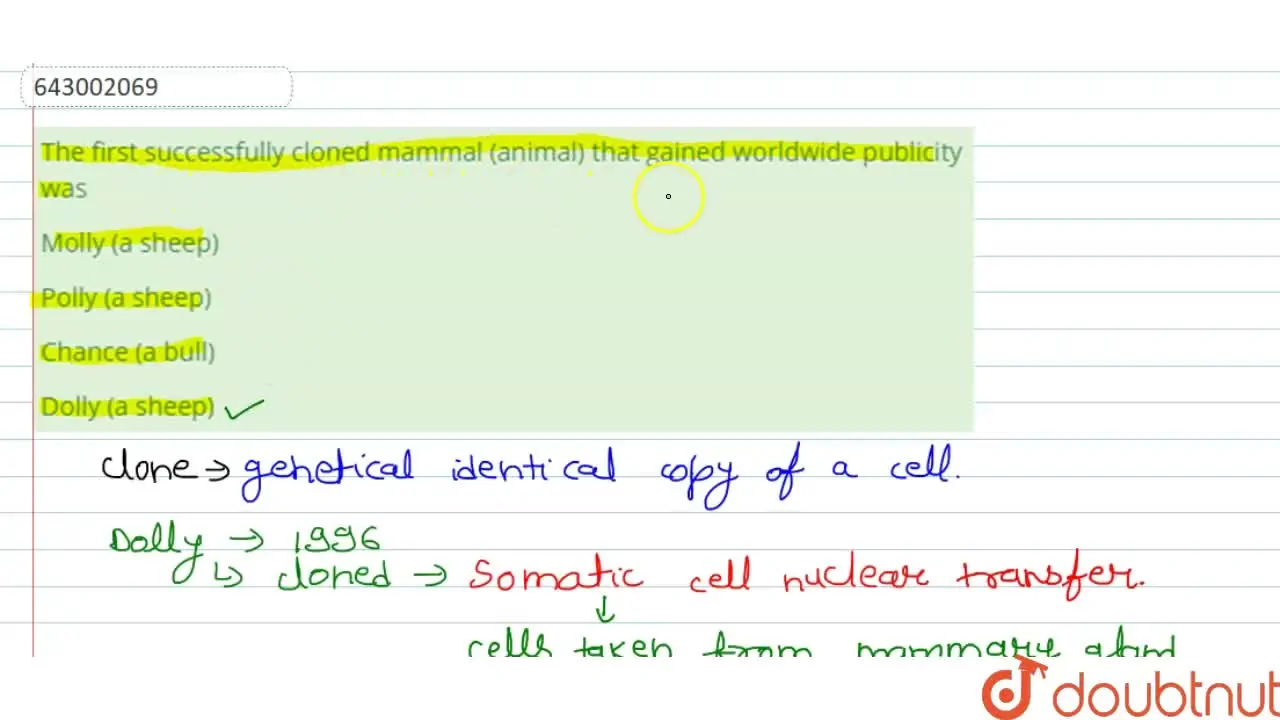 643002069
The first successfully cloned mammal (animal) that gained worldwide publicity
was
Molly (a sheep)
Polly (a sheep)
Chance (a bull)
Dolly (a sheep)
clone → genetical identical copy of a cell.
Dolly → 1996
↳ cloned → Somatic cell nuclear transfer.
↓
cells taken from mammary gland
doubtnut